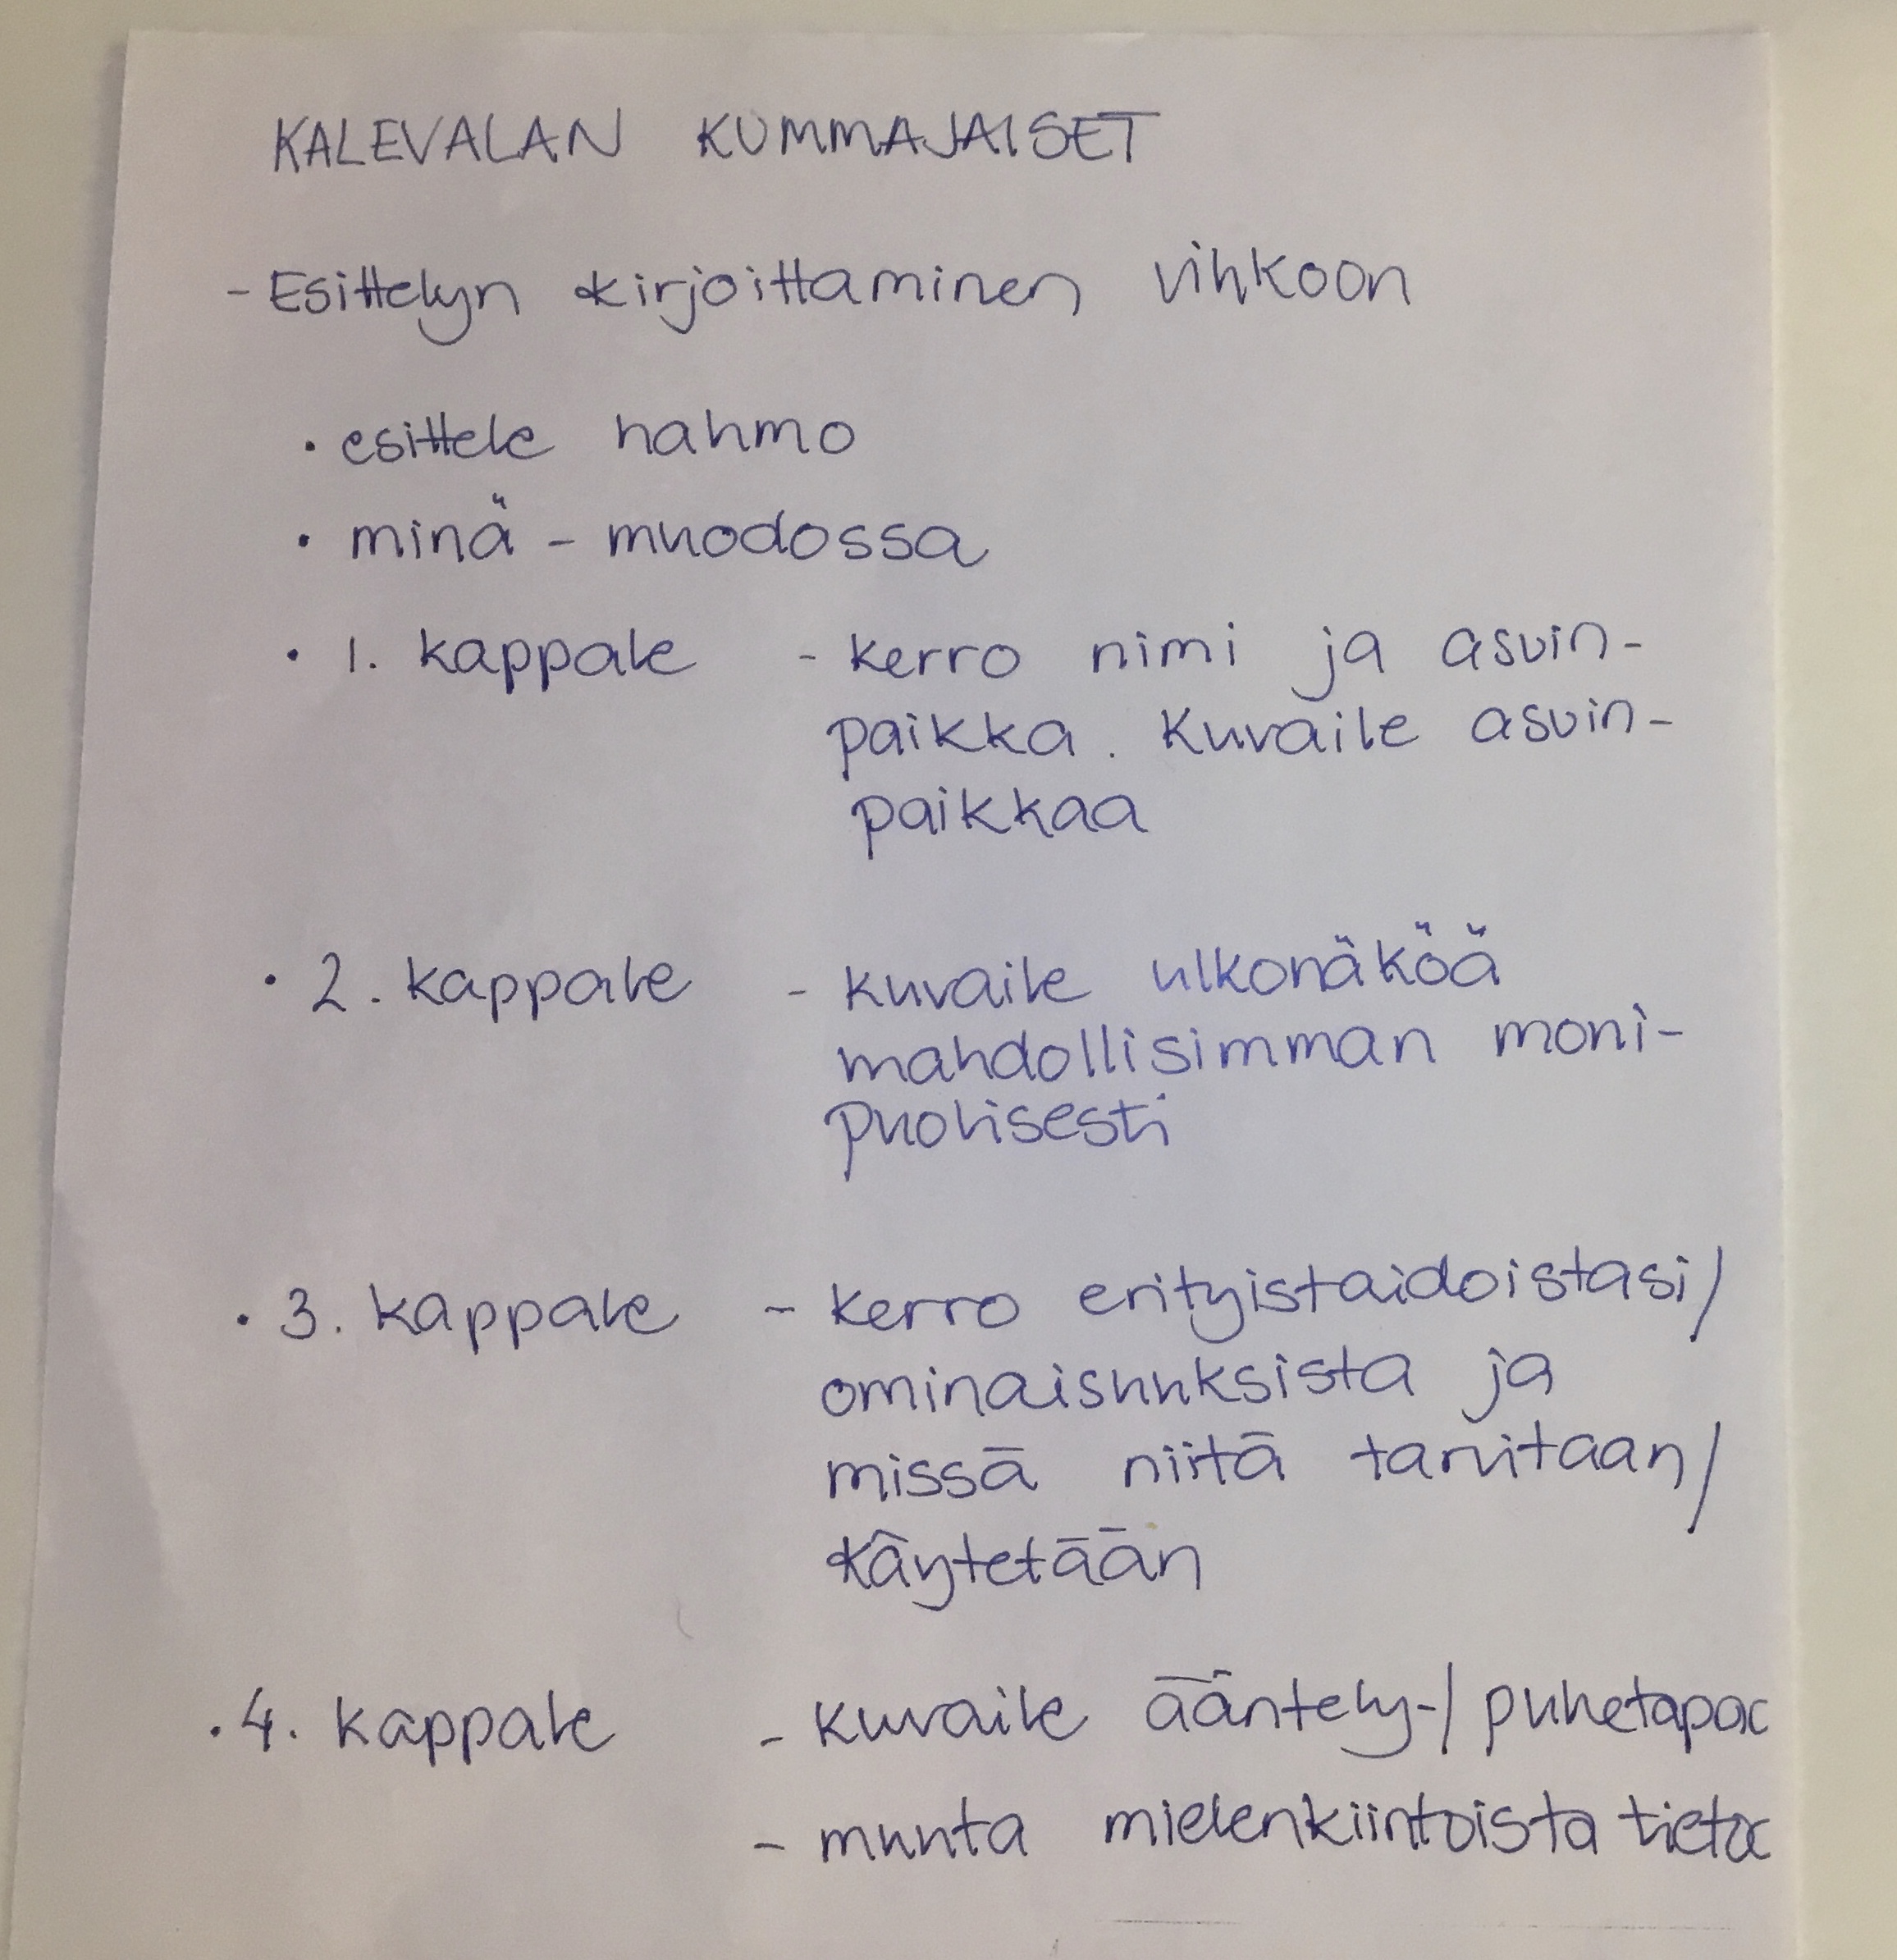 KALEVALAN KUMMAJAISET
- Esittelyn kirjoittaminen vihkoon
• esittele hahmo
• minä - muodossa
• 1. kappale - kerro nimi ja asuin-
paikka. Kuvaile asuin-
paikkaa
• 2. kappale - kuvaile ulkonäköä
mahdollisimman moni-
puolisesti
• 3. kappale - kerro erityistaidoistasi/
ominaisuuksista ja
missä niitä tarvitaan/
käytetään
• 4. kappale - kuvaile ääntely-/puhetapaa
- muuta mielenkiintoista tietoa